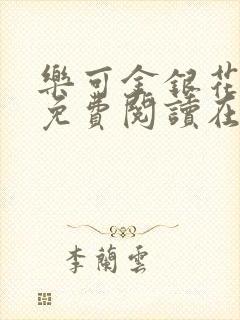 樂可金銀花
免費閱讀在
李蘭雲